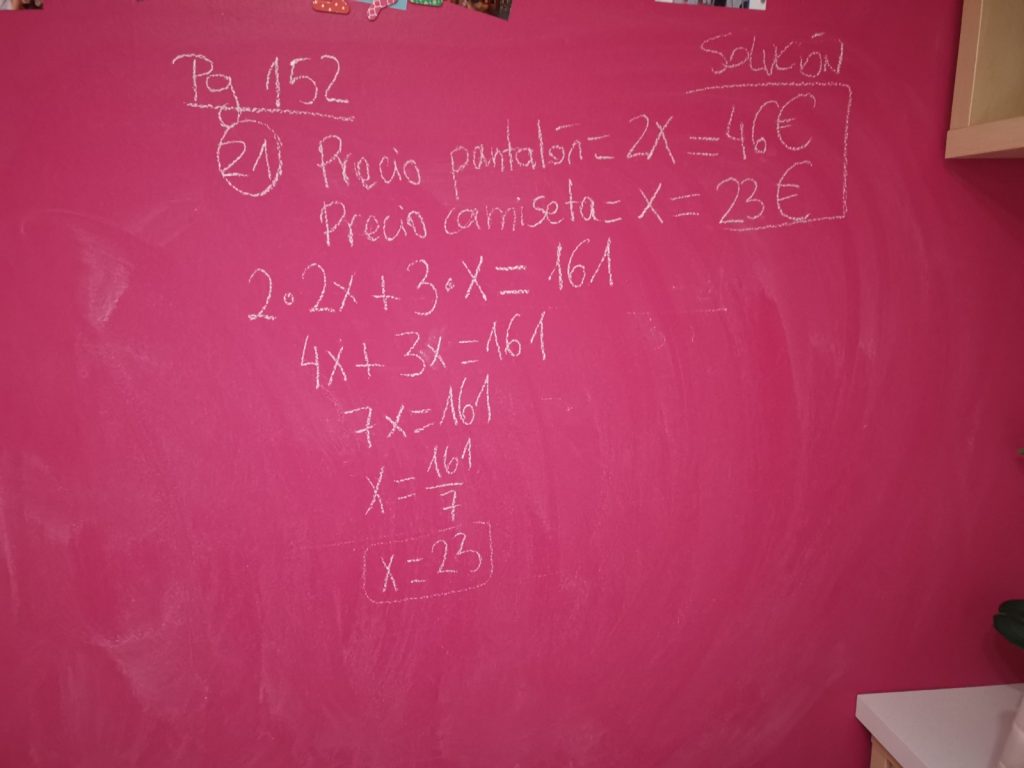 Pg 152
Solución
21 Precio pantalón = 2x = 46€
Precio camiseta = x = 23€
2·2x + 3·x = 161
4x + 3x = 161
7x = 161
x = 161/7
x = 23